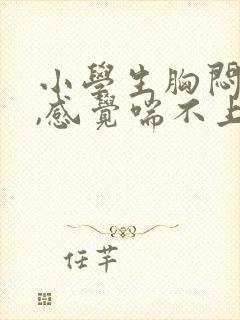 小學生胸悶
,感覺喘不上
任芊